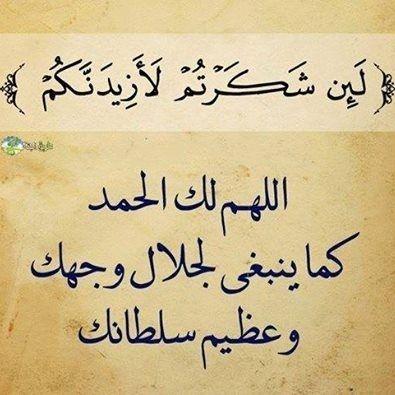 ﴿ لَئِن شَكَرْتُمْ لَأَزِيدَنَّكُمْ ﴾
اللهم لك الحمد
كما ينبغى لجلال وجهك
وعظيم سلطانك